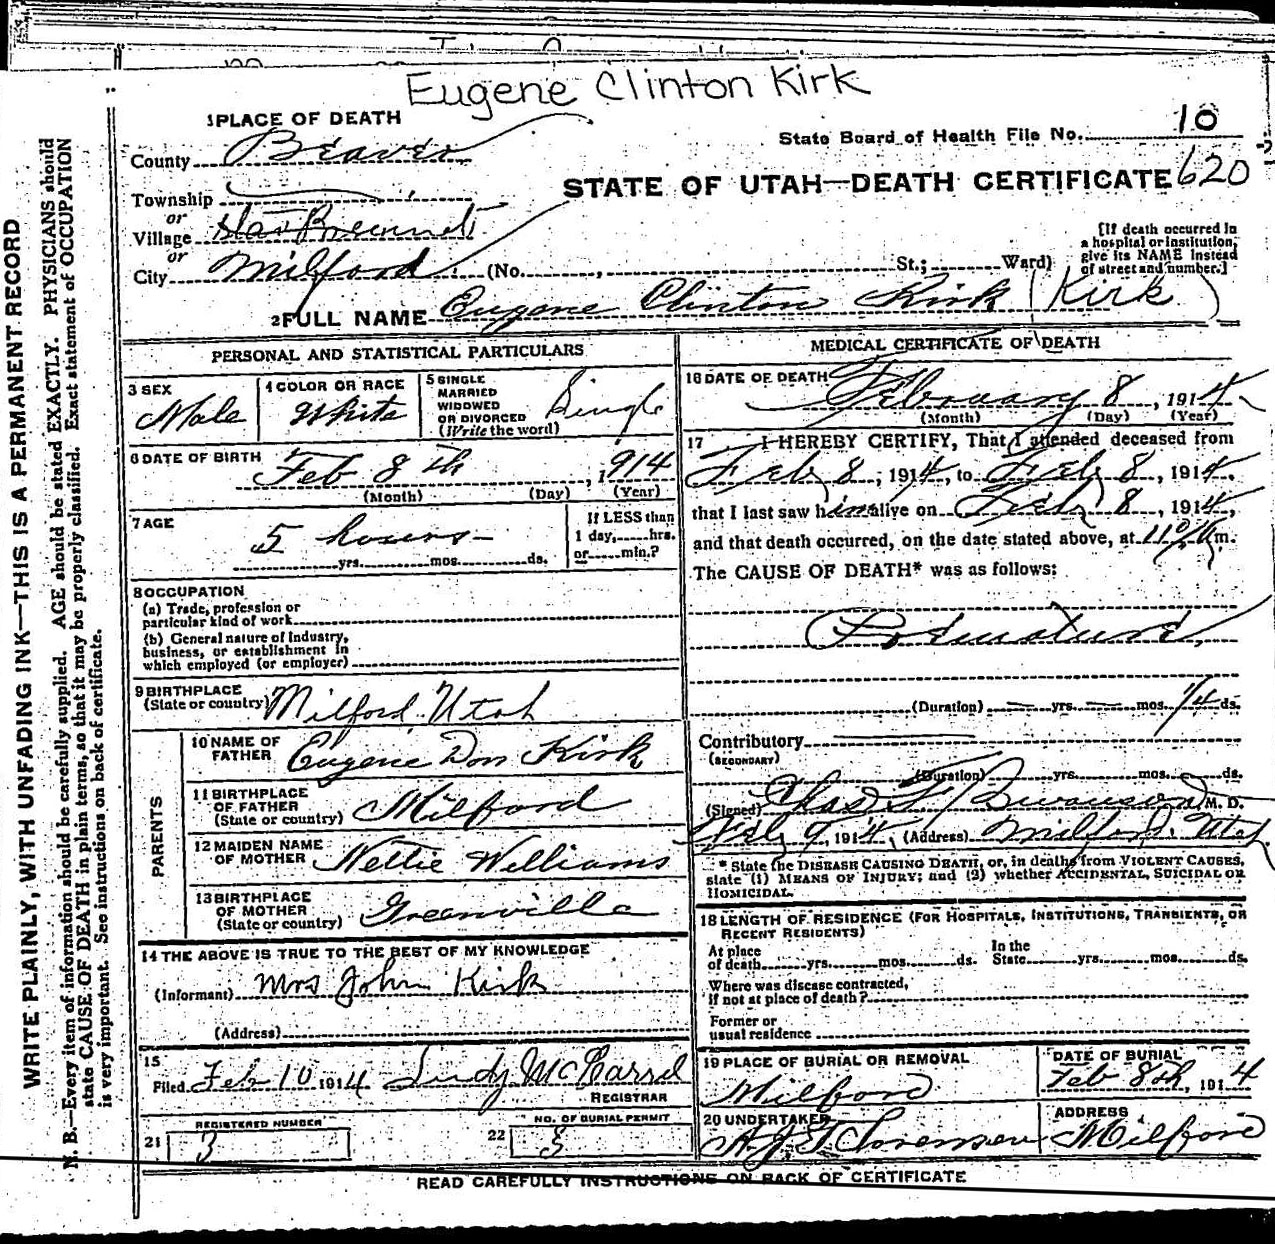 Eugene Clinton Kirk
1 PLACE OF DEATH
State Board of Health File No. 10
County Beaver
STATE OF UTAH—DEATH CERTIFICATE 620
Township
or
Village
or
City Milford (No. , St.; Ward)
[If death occurred in
a hospital or institution,
give its NAME instead
of street and number.]
2 FULL NAME Eugene Clinton Kirk (Kirk)
PERSONAL AND STATISTICAL PARTICULARS
3 SEX
Male
4 COLOR OR RACE
White
5 SINGLE
MARRIED
WIDOWED
OR DIVORCED
(Write the word)
Single
6 DATE OF BIRTH
Feb 8th, 1914
(Month) (Day) (Year)
7 AGE
5 hours
yrs. mos. ds.
If LESS than
1 day, hrs.
or min.?
8 OCCUPATION
(a) Trade, profession or
particular kind of work
(b) General nature of Industry,
business, or establishment in
which employed (or employer)
9 BIRTHPLACE
(State or country) Milford Utah
PARENTS
10 NAME OF
FATHER Eugene Don Kirk
11 BIRTHPLACE
OF FATHER
(State or country) Milford
12 MAIDEN NAME
OF MOTHER Nettie Williams
13 BIRTHPLACE
OF MOTHER
(State or country) Greenville
14 THE ABOVE IS TRUE TO THE BEST OF MY KNOWLEDGE
(Informant) Mrs John Kirk
(Address)
15
Filed Feb 10 1914
REGISTRAR
21 REGISTERED NUMBER
3
22 NO. OF BURIAL PERMIT
3
MEDICAL CERTIFICATE OF DEATH
16 DATE OF DEATH
February 8, 1914
(Month) (Day) (Year)
17 I HEREBY CERTIFY, That I attended deceased from
Feb 8, 1914, to Feb 8, 1914,
that I last saw him alive on Feb 8, 1914,
and that death occurred, on the date stated above, at 11 m.
The CAUSE OF DEATH* was as follows:
Premature
(Duration) yrs. mos. 1/4 ds.
Contributory
(SECONDARY)
(Duration) yrs. mos. ds.
(Signed) Chas F. Swanson M. D.
Feb 9, 1914, (Address) Milford, Utah
* State the DISEASE CAUSING DEATH, or, in deaths from VIOLENT CAUSES,
state (1) MEANS OF INJURY; and (2) whether ACCIDENTAL, SUICIDAL OR
HOMICIDAL.
18 LENGTH OF RESIDENCE (FOR HOSPITALS, INSTITUTIONS, TRANSIENTS, OR
RECENT RESIDENTS)
At place
of death yrs. mos. ds.
In the
State yrs. mos. ds.
Where was disease contracted,
if not at place of death?
Former or
usual residence
19 PLACE OF BURIAL OR REMOVAL
Milford
DATE OF BURIAL
Feb 8th, 1914
20 UNDERTAKER
Sorensen
ADDRESS
Milford
READ CAREFULLY INSTRUCTIONS ON BACK OF CERTIFICATE
WRITE PLAINLY, WITH UNFADING INK—THIS IS A PERMANENT RECORD
N. B.—Every item of information should be carefully supplied. AGE should be stated EXACTLY. PHYSICIANS should
state CAUSE OF DEATH in plain terms, so that it may be properly classified. Exact statement of OCCUPATION
is very important. See instructions on back of certificate.